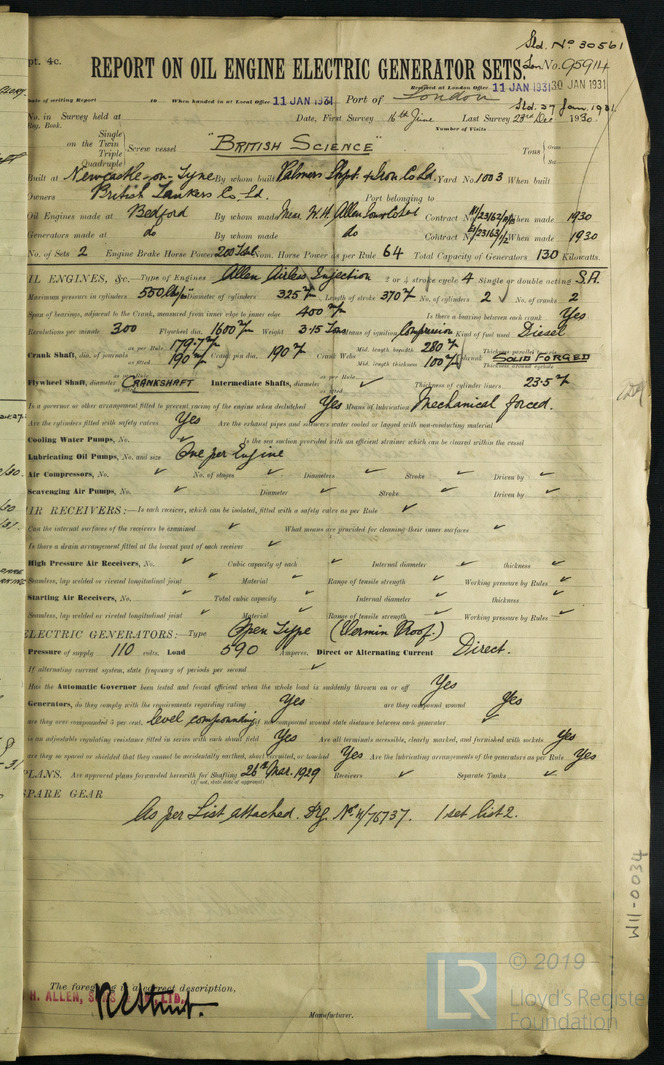 Sld. No 30561
pt. 4c.
REPORT ON OIL ENGINE ELECTRIC GENERATOR SETS.
Lon No. 95914
Received at London Office 11 JAN 1931 30 JAN 1931
Date of writing Report 19 When handed in at Local Office 11 JAN 1931 Port of London
Sld. 27 Jan. 1931
No. in Survey held at Date, First Survey 16th June Last Survey 23rd Dec 1930
Reg. Book. Number of Visits
Single
on the Twin Screw vessel "BRITISH SCIENCE" Tons Gross Net
Triple
Quadruple
Built at Newcastle-on-Tyne By whom built Palmers Shpb. & Iron Co Ld. Yard No. 1003 When built
Owners British Tankers Co, Ld. Port belonging to
Oil Engines made at Bedford By whom made Messrs W. H. Allen Sons & Co Ld Contract No. When made 1930
Generators made at do By whom made do Contract No. When made 1930
No. of Sets 2 Engine Brake Horse Power 200 Total Nom. Horse Power as per Rule 64 Total Capacity of Generators 130 Kilowatts.
IL ENGINES, &c.—Type of Engines Allen Airless Injection 2 or 4 stroke cycle 4 Single or double acting S.A.
Maximum pressure in cylinders 550 lbs/" Diameter of cylinders 325 m/m Length of stroke 370 m/m No. of cylinders 2 No. of cranks 2
Span of bearings, adjacent to the Crank, measured from inner edge to inner edge 400 m/m Is there a bearing between each crank Yes
Revolutions per minute 300 Flywheel dia. 1600 m/m Weight 3.15 Tons Means of ignition Compression Kind of fuel used Diesel
Crank Shaft, dia. of journals as per Rule 179.7 m/m as fitted 190 m/m Crank pin dia. 190 m/m Crank Webs Mid. length breadth 280 m/m Mid. length thickness 100 m/m shrunk Thickness parallel to axis SOLID FORGED Thickness around eyehole
Flywheel Shaft, diameter as per Rule CRANKSHAFT as fitted Intermediate Shafts, diameter as per Rule ✓ as fitted Thickness of cylinder liners 23.5 m/m
Is a governor or other arrangement fitted to prevent racing of the engine when declutched Yes Means of lubrication Mechanical forced.
Are the cylinders fitted with safety valves Yes Are the exhaust pipes and silencers water cooled or lagged with non-conducting material
Cooling Water Pumps, No. ✓ Is the sea suction provided with an efficient strainer which can be cleared within the vessel
Lubricating Oil Pumps, No. and size One per Engine
Air Compressors, No. ✓ No. of stages ✓ Diameters ✓ Stroke ✓ Driven by ✓
Scavenging Air Pumps, No. ✓ Diameter ✓ Stroke ✓ Driven by ✓
IR RECEIVERS:—Is each receiver, which can be isolated, fitted with a safety valve as per Rule ✓
Can the internal surfaces of the receivers be examined ✓ What means are provided for cleaning their inner surfaces ✓
Is there a drain arrangement fitted at the lowest part of each receiver ✓
High Pressure Air Receivers, No. ✓ Cubic capacity of each ✓ Internal diameter ✓ thickness ✓
Seamless, lap welded or riveted longitudinal joint ✓ Material ✓ Range of tensile strength ✓ Working pressure by Rules ✓
Starting Air Receivers, No. ✓ Total cubic capacity ✓ Internal diameter ✓ thickness ✓
Seamless, lap welded or riveted longitudinal joint ✓ Material ✓ Range of tensile strength ✓ Working pressure by Rules ✓
ELECTRIC GENERATORS:—Type Open Type (Vermin Proof.)
Pressure of supply 110 volts. Load 590 Amperes. Direct or Alternating Current Direct.
If alternating current system, state frequency of periods per second ✓
Has the Automatic Governor been tested and found efficient when the whole load is suddenly thrown on or off Yes
Generators, do they comply with the requirements regarding rating Yes are they compound wound Yes
are they over compounded 5 per cent. level compounding if not compound wound state distance between each generator ✓
is an adjustable regulating resistance fitted in series with each shunt field Yes Are all terminals accessible, clearly marked, and furnished with sockets Yes
are they so spaced or shielded that they cannot be accidentally earthed, short circuited, or touched Yes Are the lubricating arrangements of the generators as per Rule Yes
PLANS. Are approved plans forwarded herewith for Shafting 26th Mar. 1929 Receivers ✓ Separate Tanks ✓
(If not, state date of approval)
SPARE GEAR
As per List attached. Drg. No. 4/76737. 1 set list 2.
W11-0034
The foregoing is a correct description,
H. ALLEN, SONS & CO., LTD.
Manufacturer.
LR
© 2019
Lloyd's Register
Foundation